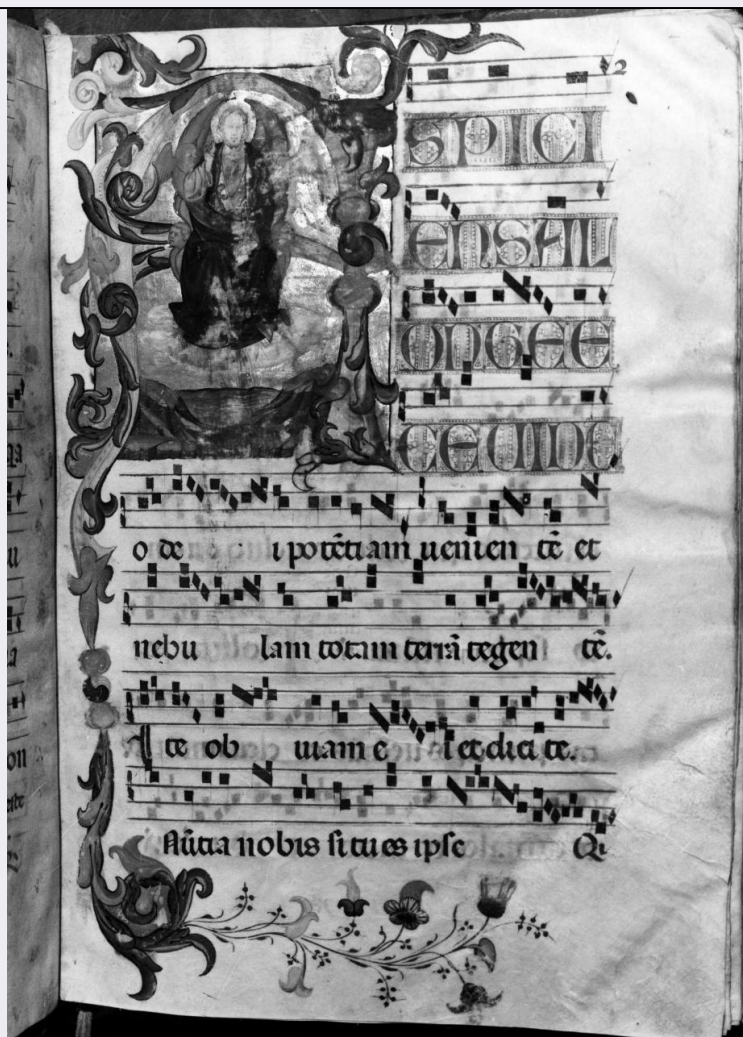 2
ASPICI
ENSAL
ONGEE
CEUIDE
o de i potētiam uenien tē et
nebu lam totam terrā tegen tē.
Ite ob uiam e i et dici te.
Nūtia nobis si tu es ipse Qi